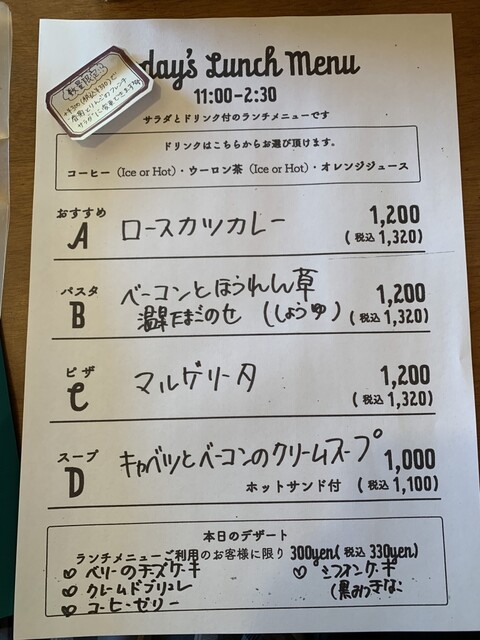 数量限定
+¥300(税込¥330)で
サラダに変更できます
day's Lunch Menu
11:00-2:30
サラダとドリンク付のランチメニューです
ドリンクはこちらからお選び頂けます。
コーヒー（Ice or Hot）・ウーロン茶（Ice or Hot）・オレンジジュース
おすすめ
A ロースカツカレー 1,200
(税込 1,320)
パスタ
B ベーコンとほうれん草 1,200
温泉たまごのせ (しょうゆ) (税込 1,320)
ピザ
C マルゲリータ 1,200
(税込 1,320)
スープ
D キャベツとベーコンのクリームスープ 1,000
ホットサンド付 (税込 1,100)
本日のデザート
ランチメニューご利用のお客様に限り 300yen(税込 330yen)
♡ ベリーのチーズケーキ ♡ シフォンケーキ
♡ クレームドブリュレ (黒みつきなこ
♡ コーヒーゼリー